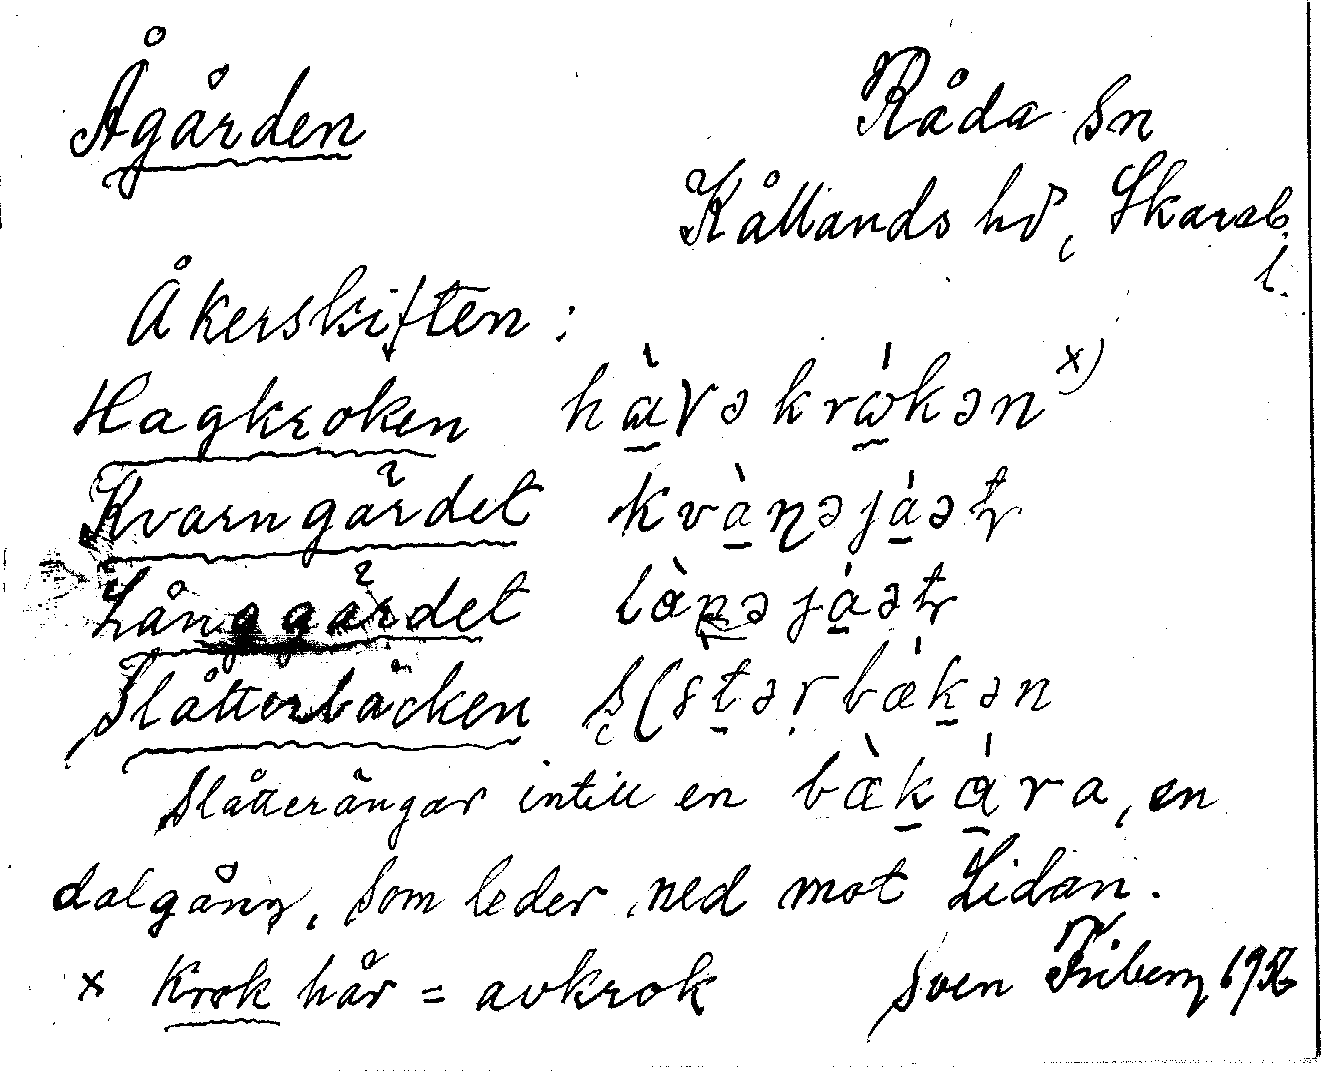 Ågården
Råda sn
Kållands hd, Skarab.
l.
Åkerskiften:
Hagkroken hàvəkrókən x)
Kvarngärdet kvàṇəjáət
Långgärdet làŋəjáət
Slåtterbäcken
Slåtterängar intill en bækára, en
dalgång, som leder ned mot Lidan.
x Krok här = avkrok
Sven Friberg 1956